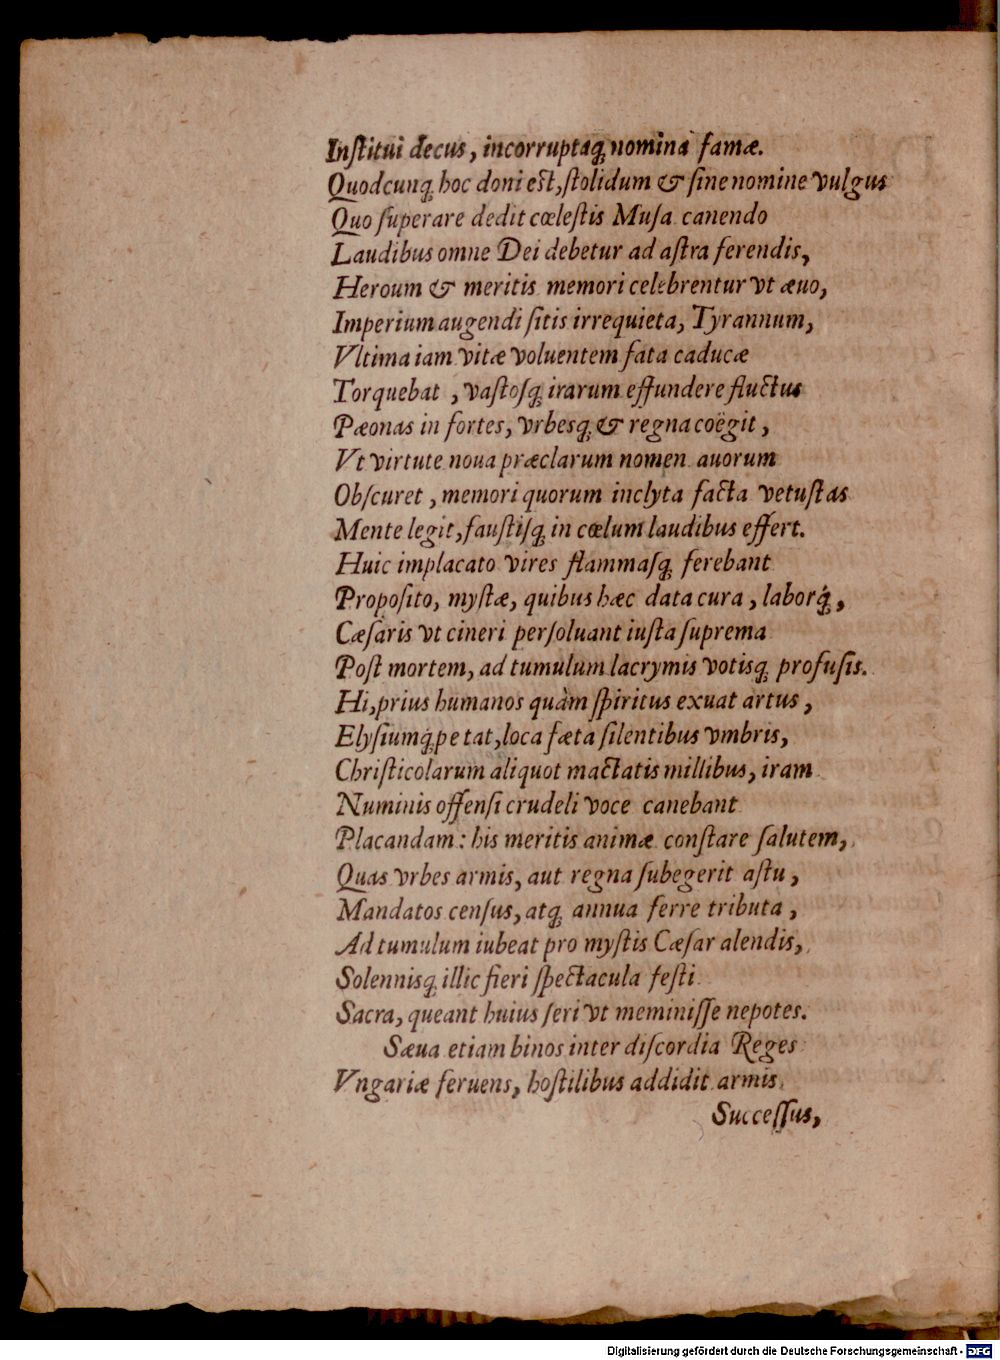 Inſtitui decus, incorruptaq́ꝫ nomina famæ.
Quodcunqꝫ hoc doni eſt, ſtolidum & ſine nomine vulgus
Quo ſuperare dedit cœleſtis Muſa canendo
Laudibus omne Dei debetur ad aſtra ferendis,
Heroum & meritis memori celebrentur vt æuo,
Imperium augendi ſitis irrequieta, Tyrannum,
Vltima iam vitæ voluentem fata caducæ
Torquebat, vaſtoſqꝫ irarum effundere fluctus
Pæonas in fortes, vrbesqꝫ & regna coëgit,
Vt virtute noua præclarum nomen auorum
Obſcuret, memori quorum inclyta facta vetuſtas
Mente legit, fauſtiſqꝫ in cœlum laudibus effert.
Huic implacato vires flammaſqꝫ ferebant
Propoſito, myſtæ, quibus hæc data cura, laborq́ꝫ,
Cæſaris vt cineri perſoluant iuſta ſuprema
Poſt mortem, ad tumulum lacrymis votisqꝫ profuſis.
Hi, prius humanos quàm ſpiritus exuat artus,
Elyſiumq́ꝫ pe tat, loca fæta ſilentibus vmbris,
Chriſticolarum aliquot mactatis millibus, iram
Numinis offenſi crudeli voce canebant
Placandam: his meritis animæ conſtare ſalutem,
Quas vrbes armis, aut regna ſubegerit aſtu,
Mandatos cenſus, atqꝫ annua ferre tributa,
Ad tumulum iubeat pro myſtis Cæſar alendis,
Solennisqꝫ illic fieri ſpectacula feſti
Sacra, queant huius ſeri vt meminiſſe nepotes.
Sæua etiam binos inter diſcordia Reges
Vngariæ feruens, hoſtilibus addidit armis
Succeſſus,
Digitalisierung gefördert durch die Deutsche Forschungsgemeinschaft - DFG